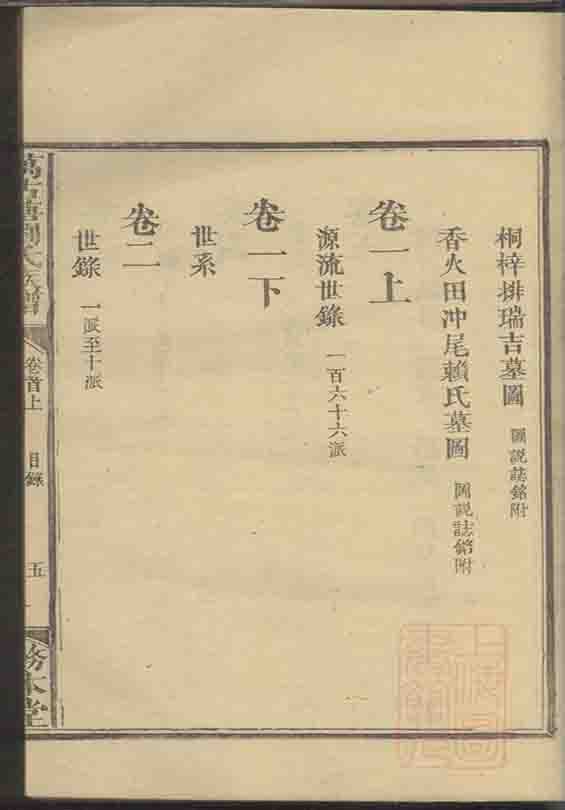 桐梓排瑞吉墓圖 圖説誌銘附
香火田冲尾賴氏墓圖 圖説誌銘附
卷一上
源流世錄 一百六十六派
卷一下
世系
卷二
世錄 一派至十派
萬古塘劉氏族譜
卷首上
目錄
五
務本堂